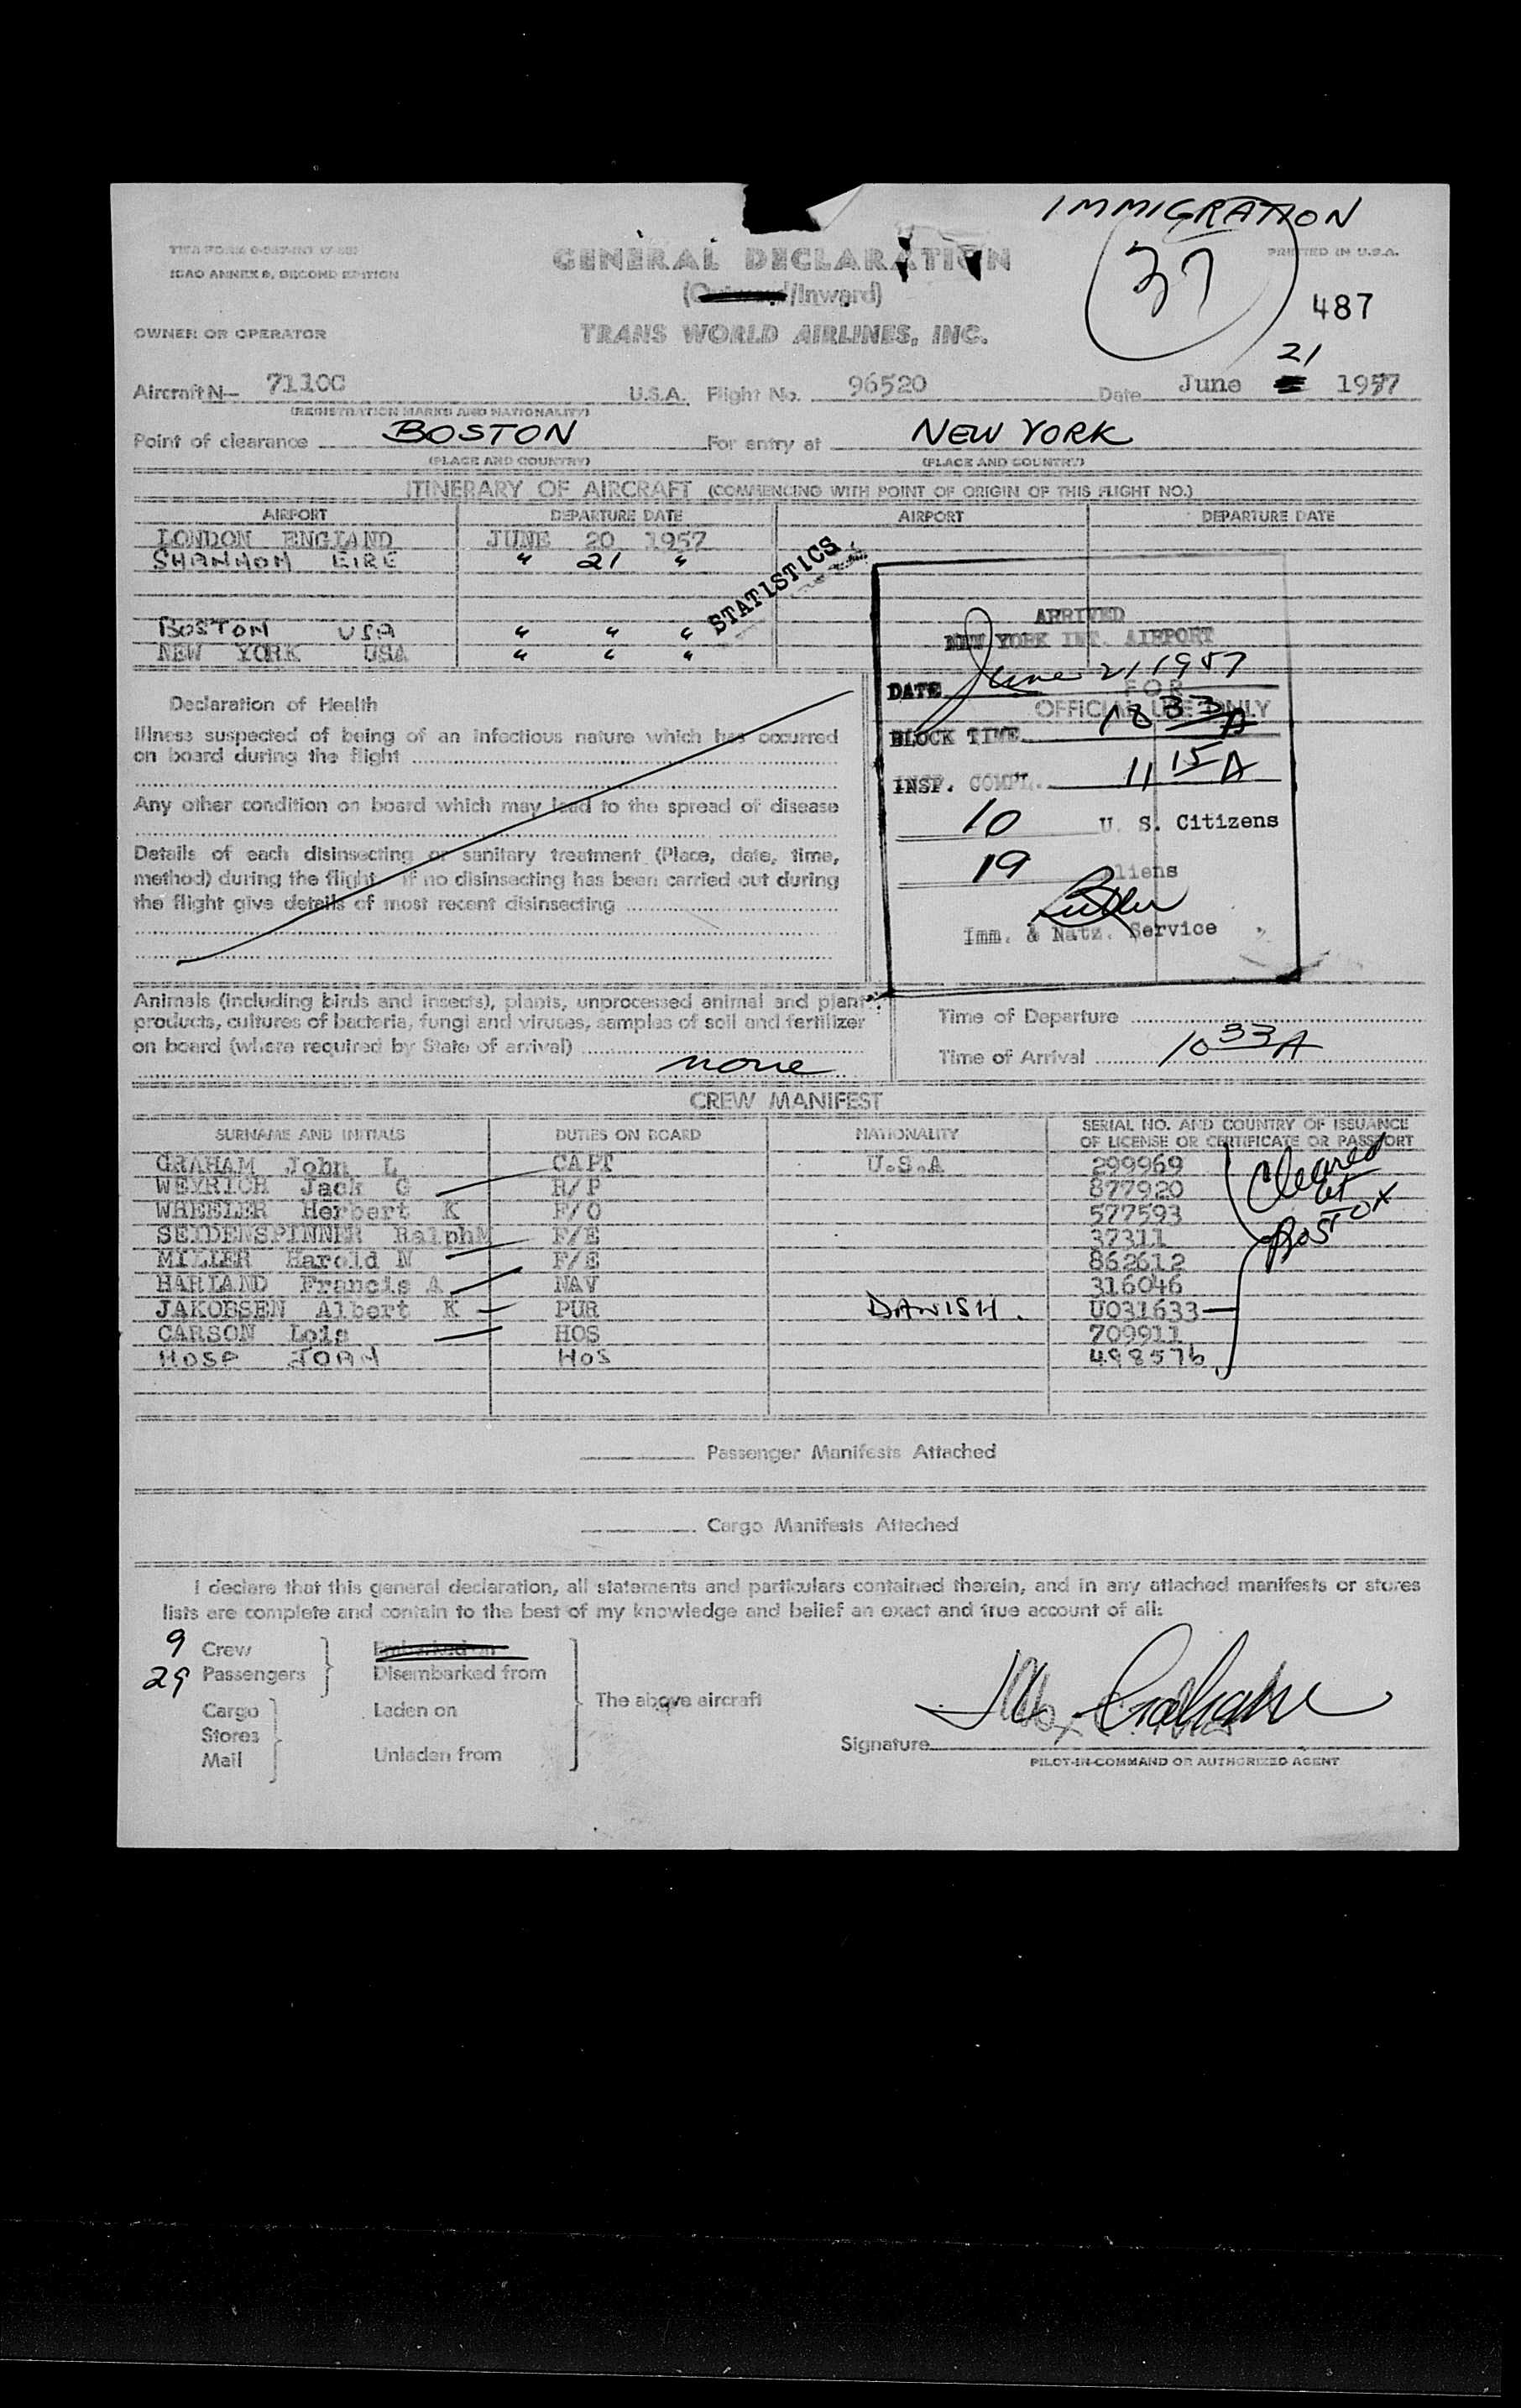 IMMIGRATION
37
ICAO ANNEX 9, SECOND EDITION
PRINTED IN U.S.A.
GENERAL DECLARATION
(Outward/Inward)
487
OWNER OR OPERATOR
TRANS WORLD AIRLINES, INC.
21
Aircraft N- 7110C U.S.A. Flight No. 96520 Date June 1957
(REGISTRATION MARKS AND NATIONALITY)
Point of clearance BOSTON For entry at NEW YORK
(PLACE AND COUNTRY) (PLACE AND COUNTRY)
ITINERARY OF AIRCRAFT (COMMENCING WITH POINT OF ORIGIN OF THIS FLIGHT NO.)
AIRPORT DEPARTURE DATE AIRPORT DEPARTURE DATE
LONDON ENGLAND JUNE 20 1957
SHANNON EIRE " 21 "
STATISTICS
BOSTON USA " " "
NEW YORK USA " " "
ARRIVED
NEW YORK INT. AIRPORT
DATE June 21 1957
FOR
OFFICIAL USE ONLY
BLOCK TIME 1033A
INSP. COMPL. 1115A
10 U. S. Citizens
19 Aliens
Imm. & Natz. Service
Declaration of Health
Illness suspected of being of an infectious nature which has occurred
on board during the flight
Any other condition on board which may lead to the spread of disease
Details of each disinsecting or sanitary treatment (Place, date, time,
method) during the flight. If no disinsecting has been carried out during
the flight give details of most recent disinsecting
Animals (including birds and insects), plants, unprocessed animal and plant
products, cultures of bacteria, fungi and viruses, samples of soil and fertilizer
on board (where required by State of arrival)
none
Time of Departure
Time of Arrival 1033A
CREW MANIFEST
SURNAME AND INITIALS DUTIES ON BOARD NATIONALITY SERIAL NO. AND COUNTRY OF ISSUANCE
OF LICENSE OR CERTIFICATE OR PASSPORT
GRAHAM John L CAPT U.S.A 299969
WEYRICH Jack G R/P 877920
WHEELER Herbert K F/O 577593
SEIDENSPINNER Ralph M F/E 37311
MILLER Harold N F/E 862612
HARLAND Francis A NAV 316046
JAKOBSEN Albert K PUR DANISH. U031633
CARSON Lois HOS 709911
HOSP JOAN HOS 498576
Cleared
at
BOSTON
Passenger Manifests Attached
Cargo Manifests Attached
I declare that this general declaration, all statements and particulars contained therein, and in any attached manifests or stores
lists are complete and contain to the best of my knowledge and belief an exact and true account of all:
9 Crew Embarked on
29 Passengers Disembarked from
Cargo Laden on
The above aircraft
Stores
Mail Unladen from
Signature Graham
PILOT-IN-COMMAND OR AUTHORIZED AGENT